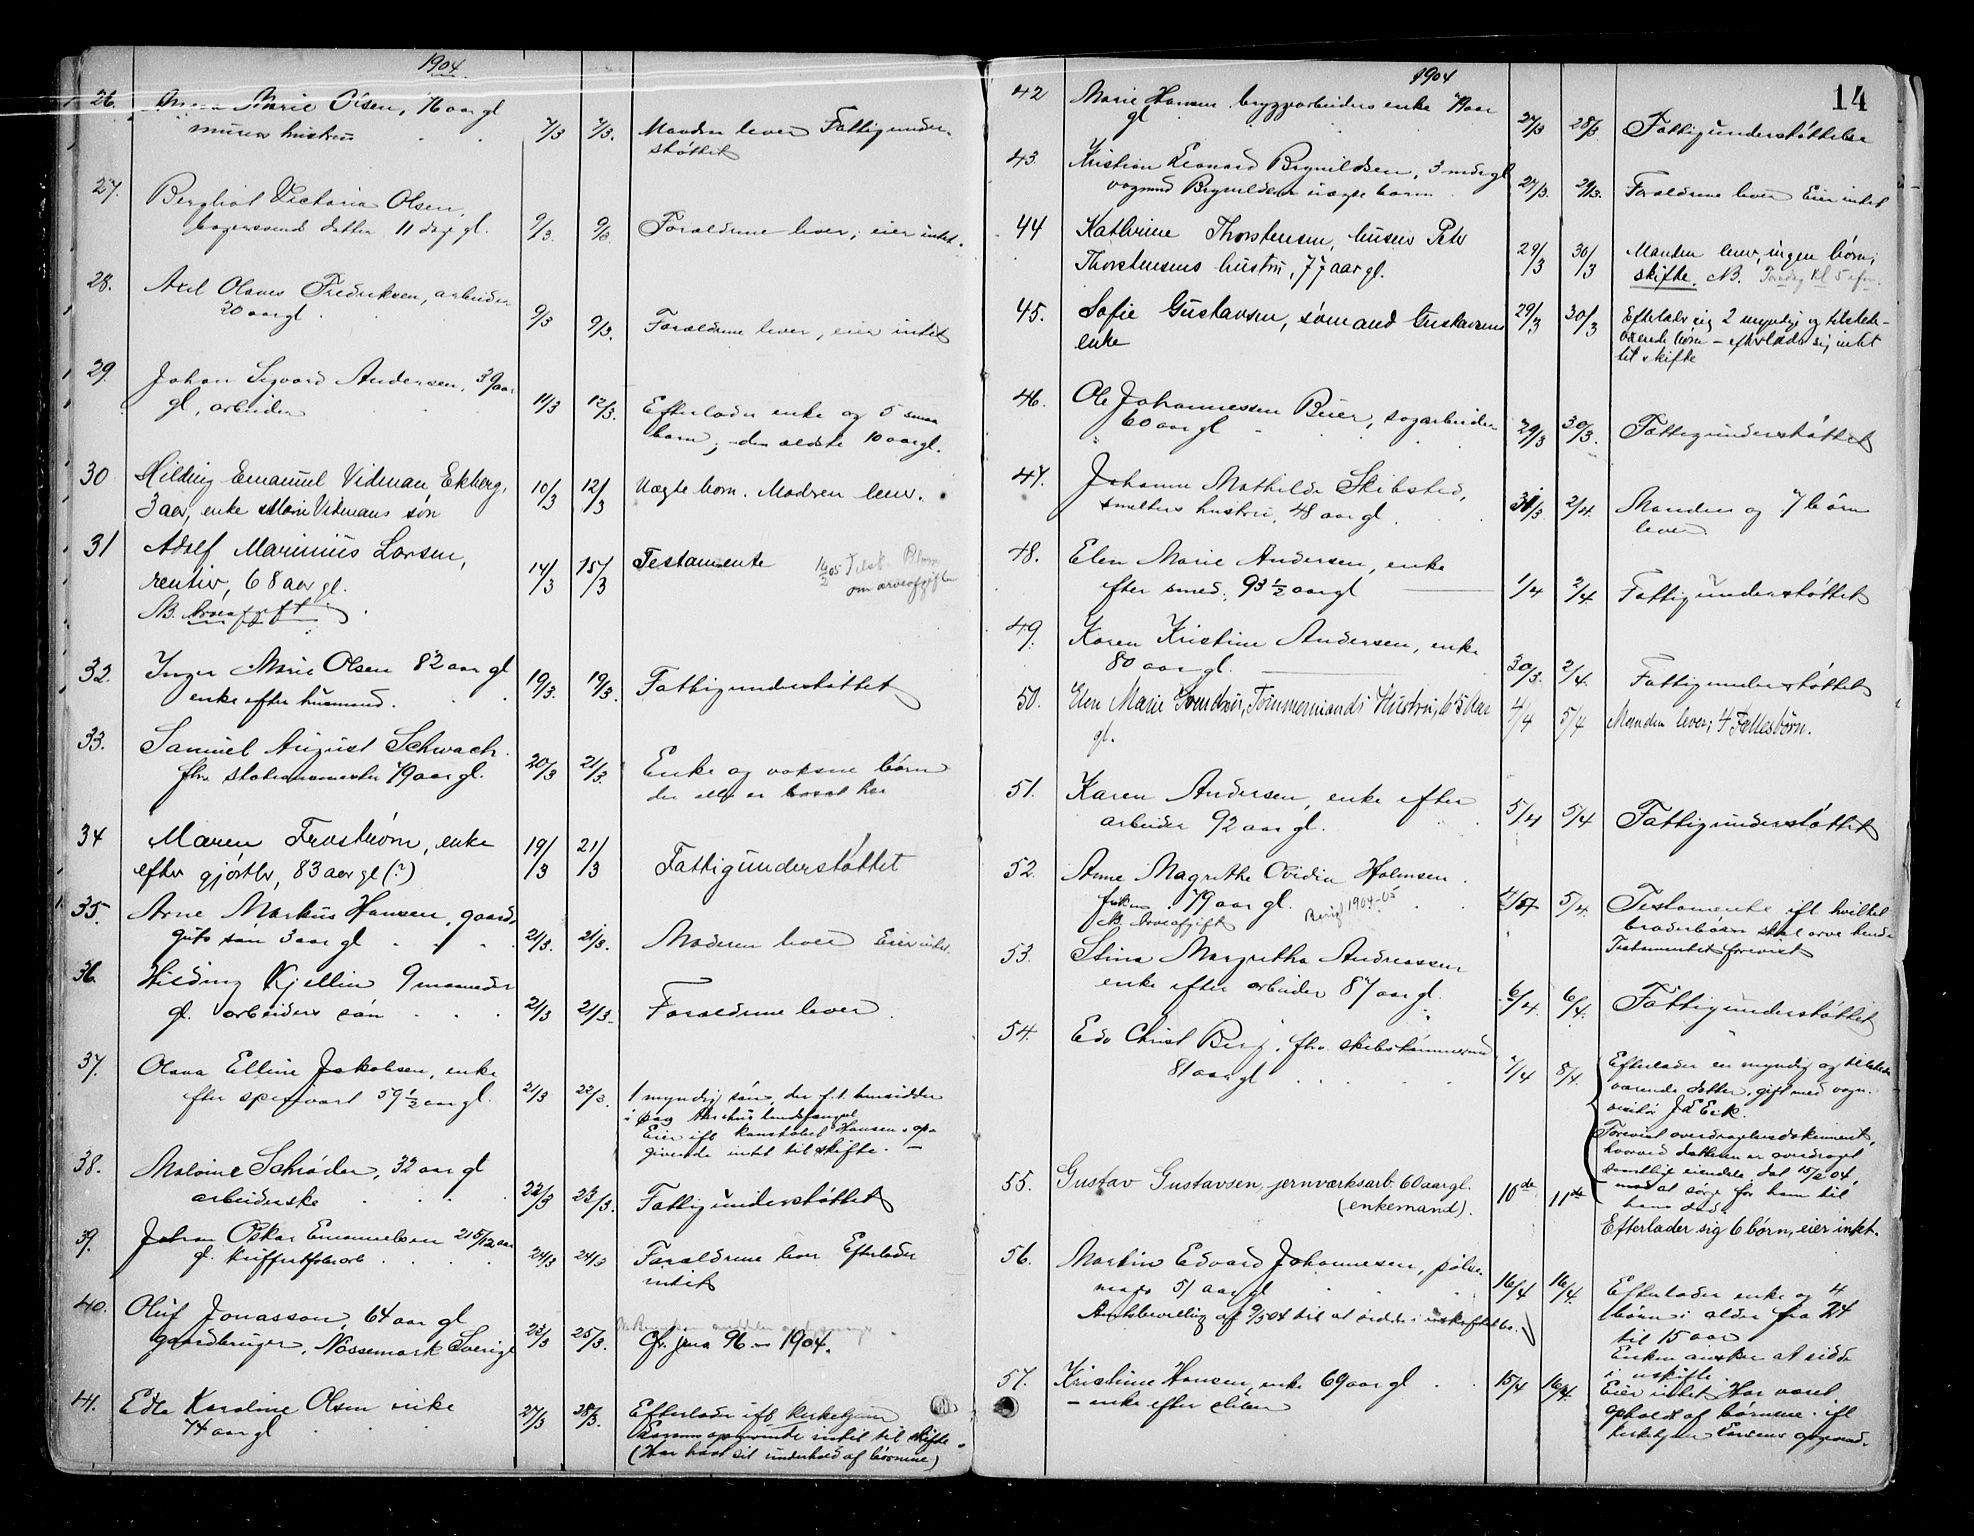 1904
26. Anna Marie Olsen, 76 aar gl
murers hustru 7/3 7/3. Manden lever Fattigunder-
støttet
27. Bergliot Victoria Olsen,
datter 11 dage gl. 9/3. 9/3 Forældrene lever, eier intet.
28. Axel Olaves Fredriksen, arbeider
20 aar gl. 9/3 9/3. Forældrene lever, eier intet
29. Johan Sigvard Andersen, 39 aar
gl, arbeider 11/3 12/3. Efterlader enke og 5 smaa
børn, den ældste 10 aar gl.
30 Hilding Emanuel Vidman Ekberg,
3 aar, enke Marie Vidmans søn 10/3 12/3 Uægte barn. Modren lever.
31 Adolf Marinius Larsen,
rentier, 68 aar gl. 14/3 15/3 Testamente
om arveafgiften
NB. Arveafgift
32. Inger Marie Olsen 82 aar gl
enke efter husmand. 19/3. 19/3. Fattigunderstøttet
33. Samuel August Schwach
fhv. stationsmester 79 aar gl. 20/3 21/3. Enke og voksne børn
der alle er bosat her
34 Maren Frostrøm, enke
efter gjørtler, 83 aar gl (?) 19/3 21/3 Fattigunderstøttet
35. Arne Markus Hansen, gaard-
guts søn 3 aar gl 21/3. 21/3. Moderen lever Eier intet.
36. Hilding Kjellin 9 maaneder
gl. arbeiders søn 21/3 21/3. Forældrene lever.
37. Olava Elline Jakobsen, enke
efter 59 1/2 aar gl. 21/3 22/3. 1 myndig søn, der f. t. hensidder
i Akershus landsfængsel
Eier ifl. konstabel Hansens op-
givende intet til skifte. —
38. Malvine Schrøder, 32 aar gl
arbeiderske 22/3 23/3. Fattigunderstøttet
39. Johan Oskar Emanuelsen 21 5/12 aar
gl. kuffertfabr.arb. 24/3 24/3 Forældrene lever Efterlader
intet
40. Oluf Jonasson, 64 aar gl
gaardbruger, Nössemark Sverige 23/3 25/3. Cfr. jrn 96 – 1904.
41. Edla Karoline Olsen enke
74 aar gl 27/3 28/3. Efterlader ifl. kirketjener
opgivende intet til skifte.
(Har havt sit underhold af børnene)
1904
14
42 Marie Hansen bryggearbeiders enke 79 aar
gl 27/3 28/3 Fattigunderstøttelse
43. Kristian Leonard Brynildsen, 3 mdr gl
vognmd Brynildsens uægte barn 27/3. 29/3. Forældrene lever Eier intet
44 Kathrine Thorstensen, Peter
Thorstensens hustru, 77 aar gl. 29/3 30/3 Manden lever, ingen børn;
skifte. NB. Torsdag kl 5 efm.
45. Sofie Gustavsen, sømand Gustavsens
enke 29/3 30/3 Efterlader sig 2 myndige og tilstede-
værende børn – efterlader sig intet
til skifte
46. Ole Johannessen Buer, sagarbeider
60 aar gl 29/3 30/3. Fattigunderstøttet
47. Johanne Mathilde Skibsted,
smelters hustru, 48 aar gl. 31/3. 2/4. Manden og 7 børn
lever
48. Elen Marie Andersen, enke
efter smed, 93 1/2 aar gl 1/4 2/4 Fattigunderstøttet
49. Karen Kristine Andersen, enke
80 aar gl. 30/3. 2/4. Fattigunderstøttet
50. Elen Marie Svendsen, Tømmermands Hustru, 65 Aar
gl. 4/4 5/4 Manden lever; 4 Fællesbørn.
51. Karen Andersen, enke efter
arbeider 92 aar gl. 5/4 5/4 Fattigunderstøttet
52. Anne Magrethe Ovidia Holmsen
frøken 79 aar gl. 5/4. Testamente ifl. hvilket
NB Arveafgift broderbørn skal arve hende
Testamentet forevist
53. Stina Margretha Andreassen
enke efter arbeider 87 aar gl. 6/4 6/4. Fattigunderstøttet
54. Edv Christ Berg, fhv. skibstømmermd
81 aar gl 7/4 8/4. Efterlader en myndig og tilstede-
værende datter, gift med vogn-
visitør J Eek.
Forevist overdragelsesdokument,
hvorved datteren er overdraget
samtlige eiendele, dat. 15/2 04,
mod at sørge for ham til
hans død
55. Gustav Gustavsen, jernværksarb. 60 aar gl.
(enkemand). 10de 11te Efterlader sig 6 børn, eier intet.
56. Martin Edvard Johannesen, pølse-
mager 51 aar gl 16/4 16/4. Efterlader enke og 4
børn i alder fra 24
til 15 aar
Enken ønsker at sidde
i uskifte.
Amtsbevilling af 9/5 04 til at sidde i uskiftet bo.
57. Kristine Hansen, enke 69 aar gl 15/4 16/4. Eier intet Har været
– enke efter opholdt af børnene ifl
kirketjener Larsens opgivende.